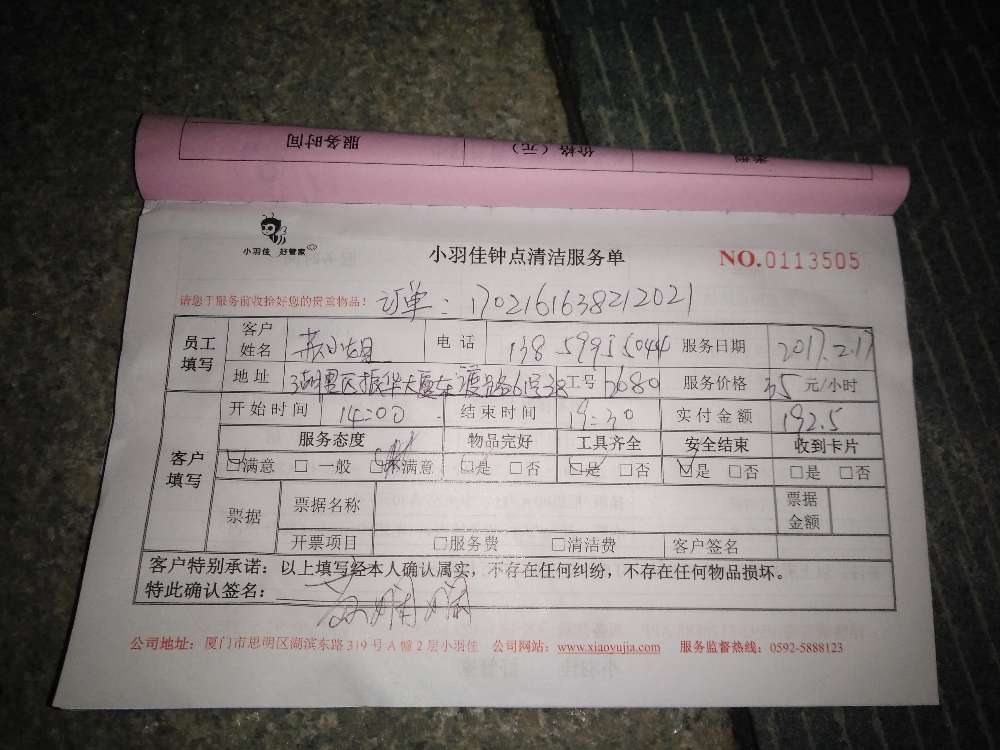 服务时间 价格（元） 类型
小羽佳 好管家
小羽佳钟点清洁服务单
NO.0113505
请您于服务前收拾好您的贵重物品！ 订单：1702161638212021
员工填写 客户姓名 电话 服务日期 2017.2.17
地址 湖里区振华大厦东渡路61号 工号 3680 服务价格 35 元/小时
客户填写 开始时间 14:00 结束时间 19:30 实付金额 192.5
服务态度 物品完好 工具齐全 安全结束 收到卡片
☑满意 □一般 不满意 ☑是 □否 ☑是 □否 ☑是 □否 □是 □否
票据 票据名称 票据金额
开票项目 □服务费 □清洁费 客户签名
客户特别承诺：以上填写经本人确认属实，不存在任何纠纷，不存在任何物品损坏。
特此确认签名：
公司地址：厦门市思明区湖滨东路319号A幢2层小羽佳 公司网站：www.xiaoyujia.com 服务监督热线：0592-5888123